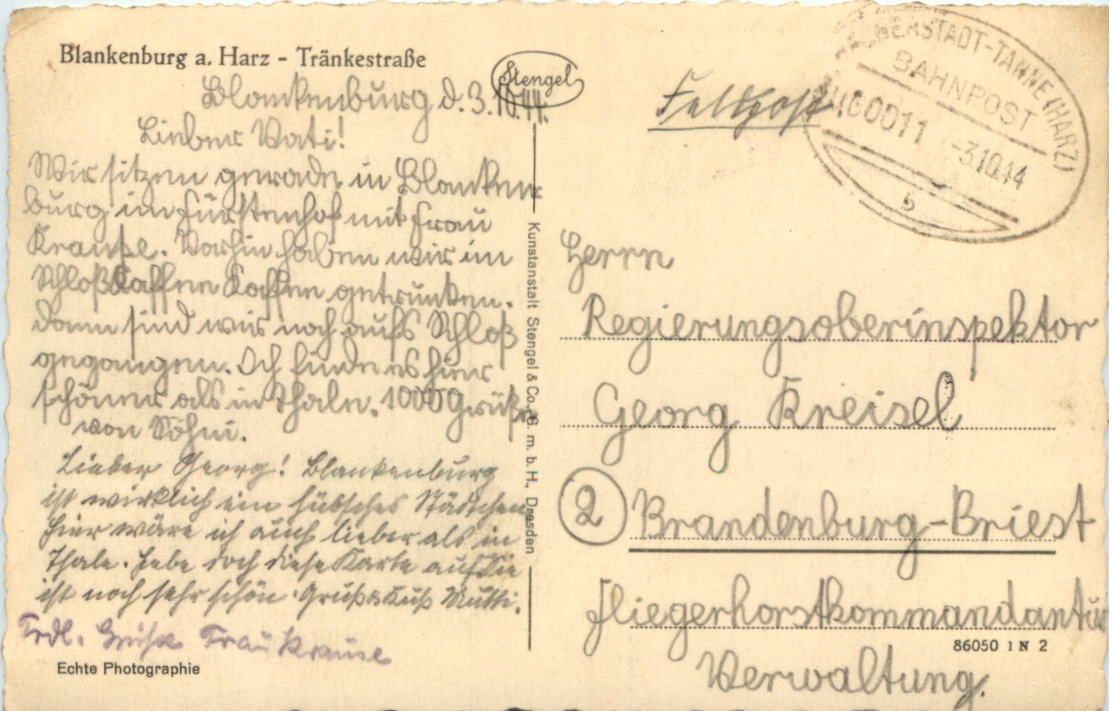 Blankenburg a. Harz - Tränkestraße
Stengel
Blankenburg d. 3.10.44.
Lieber Vati!
Wir sitzen gerade in Blanken
burg im Fürstenhof mit Frau
Krause. Vorhin haben wir im
Schloßkaffee Kaffee getrunken.
dann sind wir noch aufs Schloß
gegangen. Ich finde es hier
schöner als in Thale. 1000 Grüße
von Söhni.
Lieber Georg! Blankenburg
ist wirklich ein hübsches Städtchen
hier wäre ich auch lieber als in
Thale. Hebe doch diese Karte auf. Sie
ist noch sehr schön. Gruß & Kuß Mutti.
Frdl. Grüße Frau Krause
Echte Photographie
Kunstanstalt Stengel & Co. G. m. b. H., Dresden
Feldpost
BERSTADT-TANNE (HARZ)
BAHNPOST
ZUG 0011 -3.10.44
Herrn
Regierungsoberinspektor
Georg Kreisel
2 Brandenburg-Briest
Fliegerhorstkommandantur
Verwaltung.
86050 1 N 2